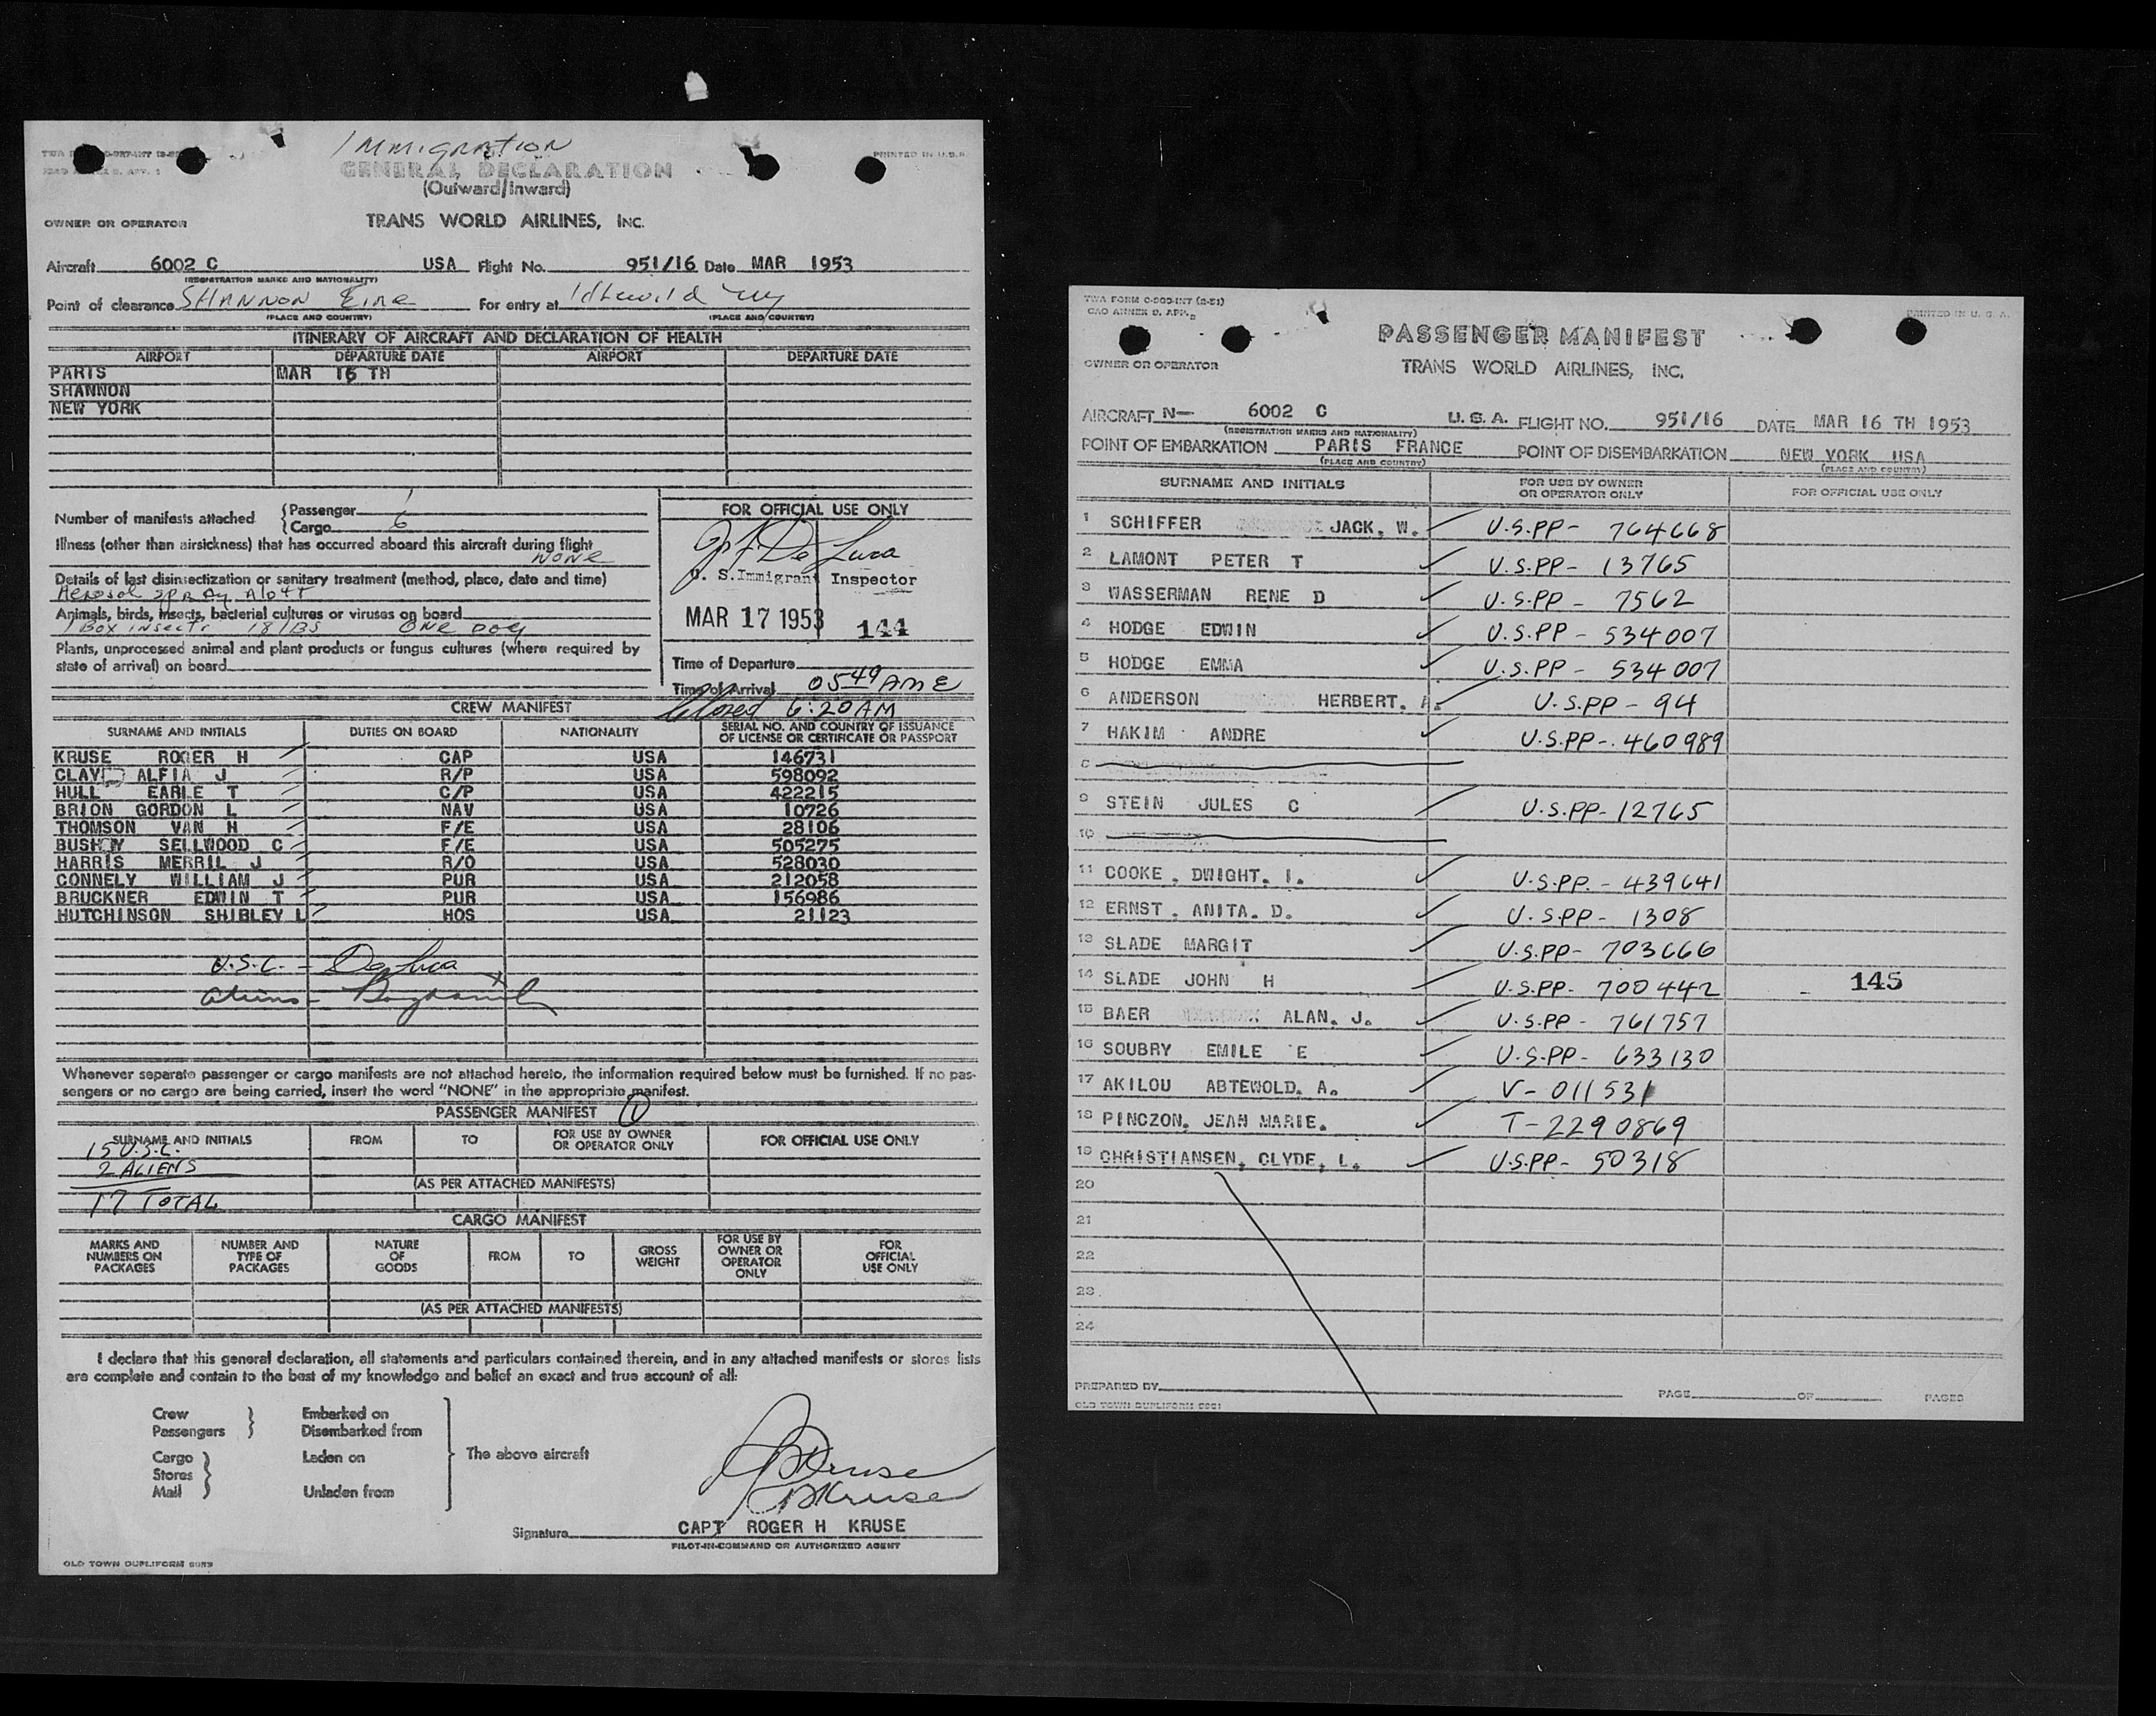 IMMIGRATION
PRINTED IN U.S.A.
GENERAL DECLARATION
(Outward/Inward)
OWNER OR OPERATOR TRANS WORLD AIRLINES, INC.
Aircraft 6002 C USA Flight No. 951/16 Date MAR 1953
(REGISTRATION MARKS AND NATIONALITY)
Point of clearance SHANNON Eire For entry at Idlewild NY
(PLACE AND COUNTRY) (PLACE AND COUNTRY)
ITINERARY OF AIRCRAFT AND DECLARATION OF HEALTH
AIRPORT DEPARTURE DATE AIRPORT DEPARTURE DATE
PARIS MAR 16 TH
SHANNON
NEW YORK
Number of manifests attached {Passenger 1
{Cargo 6
Illness (other than airsickness) that has occurred aboard this aircraft during flight
NONE
Details of last disinsectization or sanitary treatment (method, place, date and time)
Aerosol spray Aloft
Animals, birds, insects, bacterial cultures or viruses on board
1 Box insects 18 lbs ONE DOG
Plants, unprocessed animal and plant products or fungus cultures (where required by
state of arrival) on board
FOR OFFICIAL USE ONLY
De Luca
U. S. Immigrant Inspector
MAR 17 1953 144
Time of Departure
Time of Arrival 05 49 AM E
Closed 6:20 AM
CREW MANIFEST
SURNAME AND INITIALS DUTIES ON BOARD NATIONALITY SERIAL NO. AND COUNTRY OF ISSUANCE
OF LICENSE OR CERTIFICATE OR PASSPORT
KRUSE ROGER H CAP USA 146731
CLAY ALFIA J R/P USA 598092
HULL EARLE T C/P USA 422215
BRION GORDON L NAV USA 10726
THOMSON VAN H F/E USA 28106
BUSHEY SELLWOOD C F/E USA 505275
HARRIS MERRIL J R/O USA 528030
CONNELY WILLIAM J PUR USA 212058
BRUCKNER EDWIN T PUR USA 156986
HUTCHINSON SHIBLEY L HOS USA 21123
U.S.C. - De Luca
Aliens -
Whenever separate passenger or cargo manifests are not attached hereto, the information required below must be furnished. If no pas-
sengers or no cargo are being carried, insert the word "NONE" in the appropriate manifest.
PASSENGER MANIFEST 1
SURNAME AND INITIALS FROM TO FOR USE BY OWNER
OR OPERATOR ONLY FOR OFFICIAL USE ONLY
15 U.S.C.
2 ALIENS
(AS PER ATTACHED MANIFESTS)
17 TOTAL
CARGO MANIFEST
MARKS AND
NUMBERS ON
PACKAGES
NUMBER AND
TYPE OF
PACKAGES
NATURE
OF
GOODS
FROM
TO
GROSS
WEIGHT
FOR USE BY
OWNER OR
OPERATOR
ONLY
FOR
OFFICIAL
USE ONLY
(AS PER ATTACHED MANIFESTS)
I declare that this general declaration, all statements and particulars contained therein, and in any attached manifests or stores lists
are complete and contain to the best of my knowledge and belief an exact and true account of all:
Crew } Embarked on
Passengers } Disembarked from
Cargo } Laden on } The above aircraft
Stores
Mail } Unladen from
Kruse
Kruse
Signature CAPT ROGER H KRUSE
PILOT-IN-COMMAND OR AUTHORIZED AGENT
OLD TOWN DUPLIFORM
TWA FORM C-909-INT (2-51)
PRINTED IN U. S. A.
PASSENGER MANIFEST
OWNER OR OPERATOR TRANS WORLD AIRLINES, INC.
AIRCRAFT N— 6002 C U. S. A. FLIGHT NO. 951/16 DATE MAR 16 TH 1953
(REGISTRATION MARKS AND NATIONALITY)
POINT OF EMBARKATION PARIS FRANCE POINT OF DISEMBARKATION NEW YORK USA
(PLACE AND COUNTRY) (PLACE AND COUNTRY)
SURNAME AND INITIALS FOR USE BY OWNER
OR OPERATOR ONLY FOR OFFICIAL USE ONLY
1 SCHIFFER JACK. W. U.S.PP- 764668
2 LAMONT PETER T U.S.PP- 13765
3 WASSERMAN RENE D U.S.PP - 7562
4 HODGE EDWIN U.S.PP - 534007
5 HODGE EMMA U.S.PP - 534007
6 ANDERSON HERBERT. U.S.PP - 94
7 HAKIM ANDRE U.S.PP- 460989
8
9 STEIN JULES C U.S.PP- 12765
10
11 COOKE. DWIGHT. I. U.S.PP. - 439641
12 ERNST. ANITA. D. U.S.PP- 1308
13 SLADE MARGIT U.S.PP- 703660
14 SLADE JOHN H U.S.PP- 700442 145
15 BAER ALAN. J. U.S.PP - 761757
16 SOUBRY EMILE E U.S.PP- 633130
17 AKILOU ABTEWOLD. A. V- 011531
18 PINCZON. JEAN MARIE. T-2290869
19 CHRISTIANSEN, CLYDE, L. U.S.PP- 50318
20
21
22
23
24
PREPARED BY PAGE OF PAGES
OLD TOWN DUPLIFORM